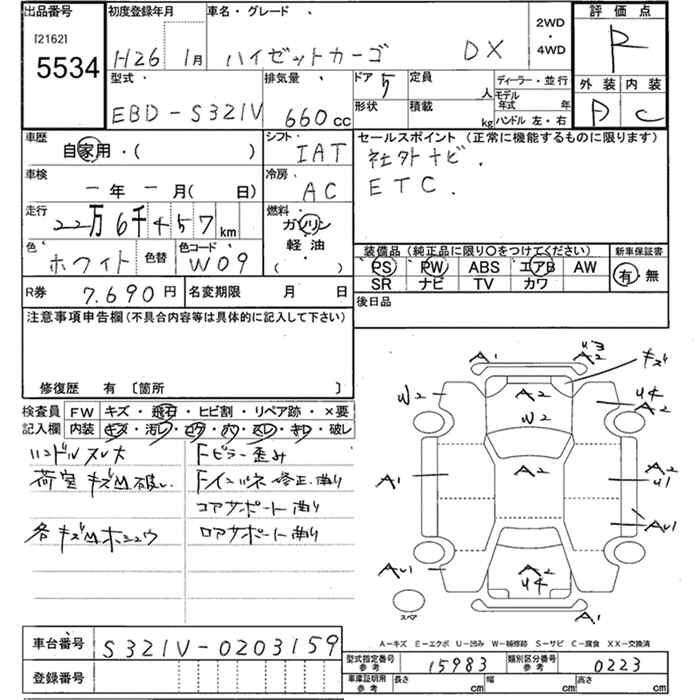 出品番号 初度登録年月 車名・グレード 2WD ・ 4WD 評価点
[2162]
5534
H26 1月 ハイゼットカーゴ DX R
型式 排気量 ドア 5 定員 人 ディーラー・並行 外装 内装
EBD-S321V 660cc 形状 積載 kg モデル年式 年 ハンドル 左・右 D C
車歴 自家用・( ) シフト IAT セールスポイント (正常に機能するものに限ります)
車検 ー年 ー月( 日) 冷房 AC 社外ナビ.
ETC.
走行 22万6千457km 燃料 ガソリン 軽油 ( )
色 ホワイト 色替 色コード W09 装備品 (純正品に限り○をつけてください) 新車保証書
PS PW ABS エアB AW 有・無
SR ナビ TV カワ
R券 7.690円 名変期限 月 日 後日品
注意事項申告欄(不具合内容等は具体的に記入して下さい)
修復歴 有 〔箇所 〕
検査員 FW キズ・飛石・ヒビ割・リペア跡・×要
記入欄 内装 キズ・汚レ・ビラ・穴・スレ・キレ・破レ
ハンドルスレ大 Fピラー歪み
荷室キズ凹破レ. Fインパネ修正.曲り
コアサポート曲り
各キズ凹ホシュウ ロアサポート曲り
A1 U3 A2 キズ
W2 A2 U4 A2
W2
A1 A2 A2 U1
AU1
AU1 A2 U4
スペア A1
A－キズ E－エクボ U－凹み W－補修跡 S－サビ C－腐食 XX－交換済
車台番号 S321V-0203159
型式指定番号 参考 15983 類別区分番号 参考 0223
登録番号 車庫証明用 参考 長さ cm 幅 cm 高さ cm